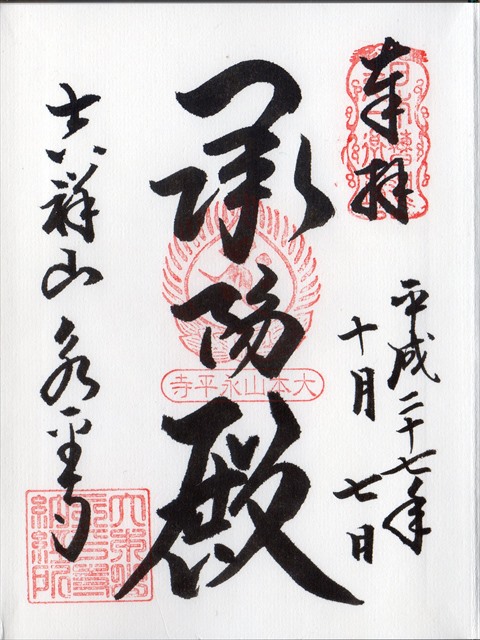 奉拝
平成二十七年
十月七日
承陽殿
大本山永平寺
吉祥山永平寺